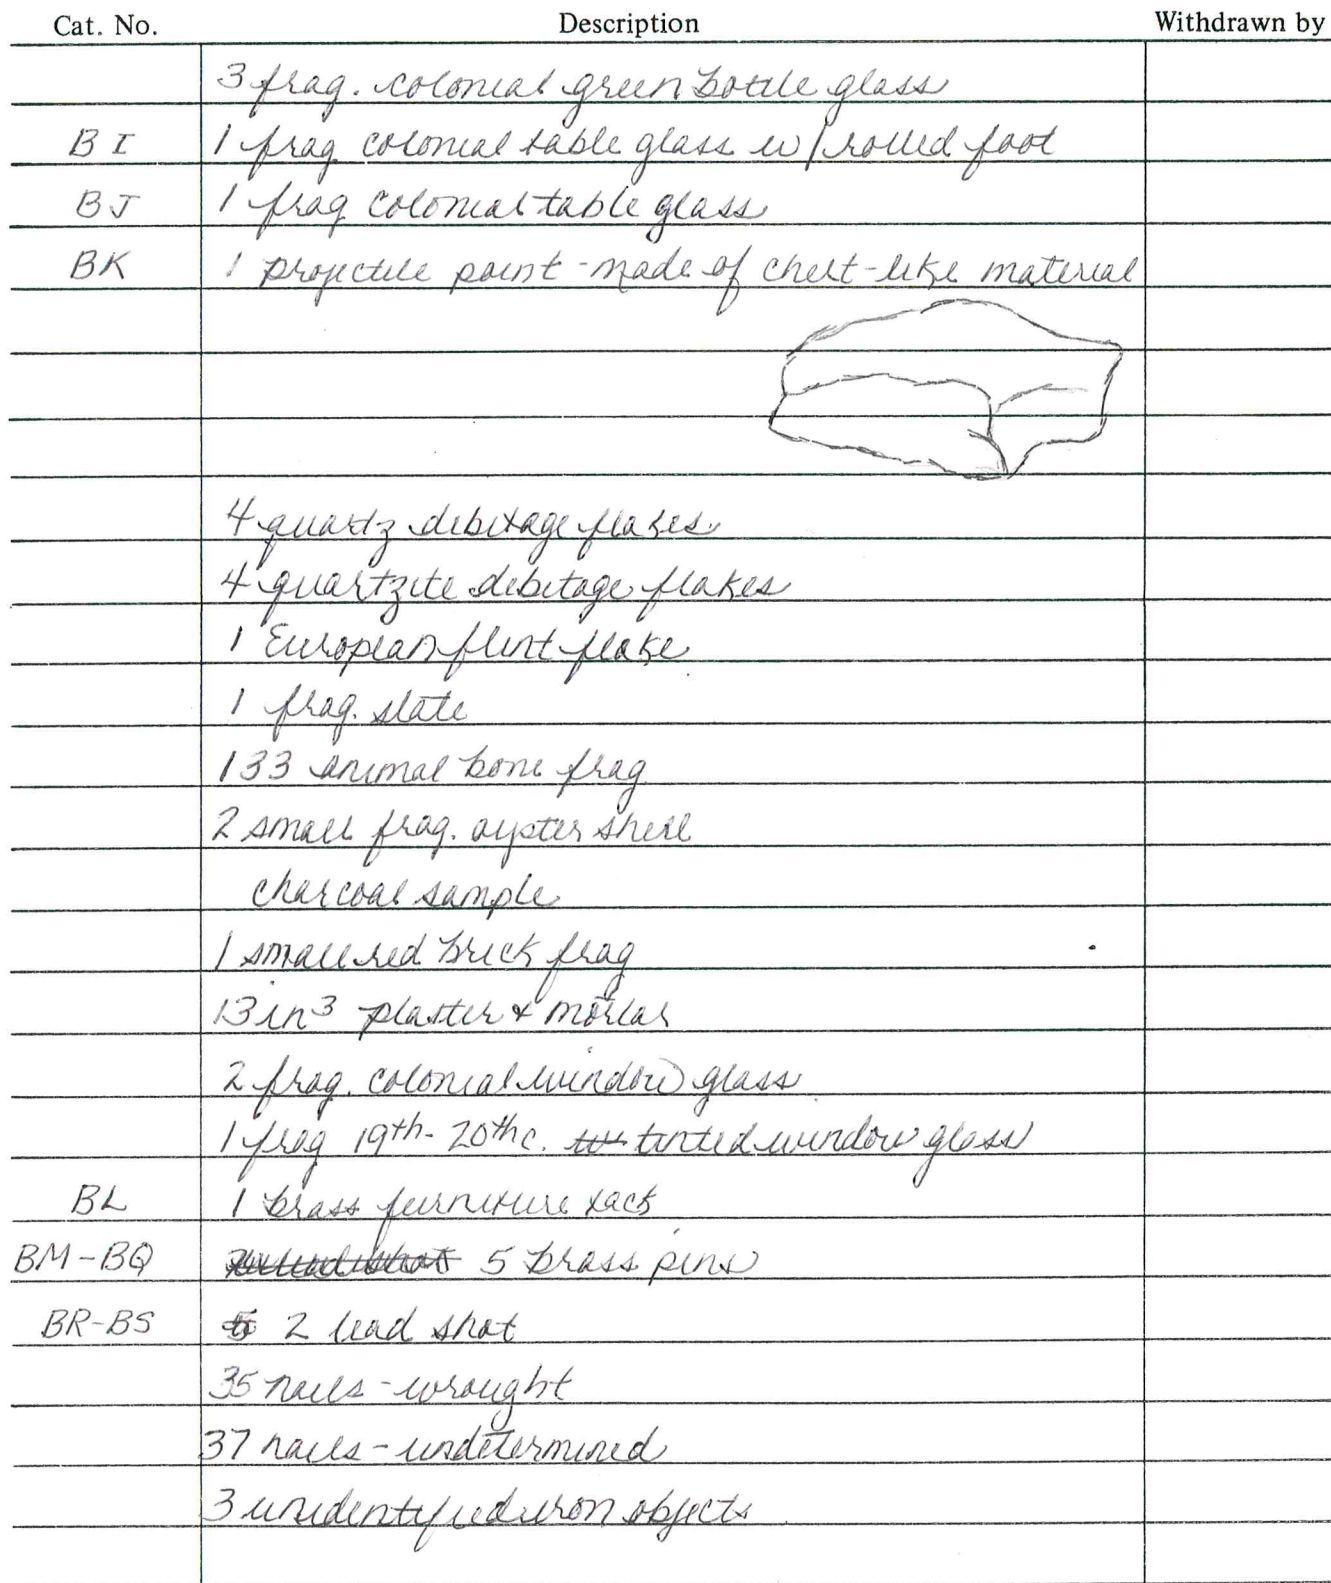 Cat. No. Description Withdrawn by
3 frag. colonial green bottle glass
BI 1 frag colonial table glass w/rolled foot
BJ 1 frag colonial table glass
BK 1 projectile point - made of chert-like material
4 quartz debitage flakes
4 quartzite debitage flakes
1 European flint flake
1 frag. slate
133 animal bone frag
2 small frag. oyster shell
charcoal sample
1 small red brick frag
13 in³ plaster & mortar
2 frag. colonial window glass
1 frag 19th-20thc. tinted window glass
BL 1 brass furniture tack
BM-BQ 5 brass pins
BR-BS 2 lead shot
35 nails - wrought
37 nails - undetermined
3 unidentified iron objects